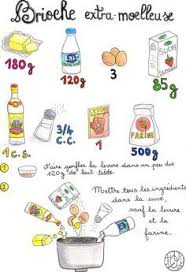 Brioche extra-moelleuse
LAIT
SUCRE
180g
120g
3
85g
FARINE
1 c.s.
3/4 c.c.
1
500g
1 Faire gonfler la levure dans un peu des
120g de lait tiède.
2 Mettre tous les ingrédients
dans la cuve,
sauf la levure
et la
farine.